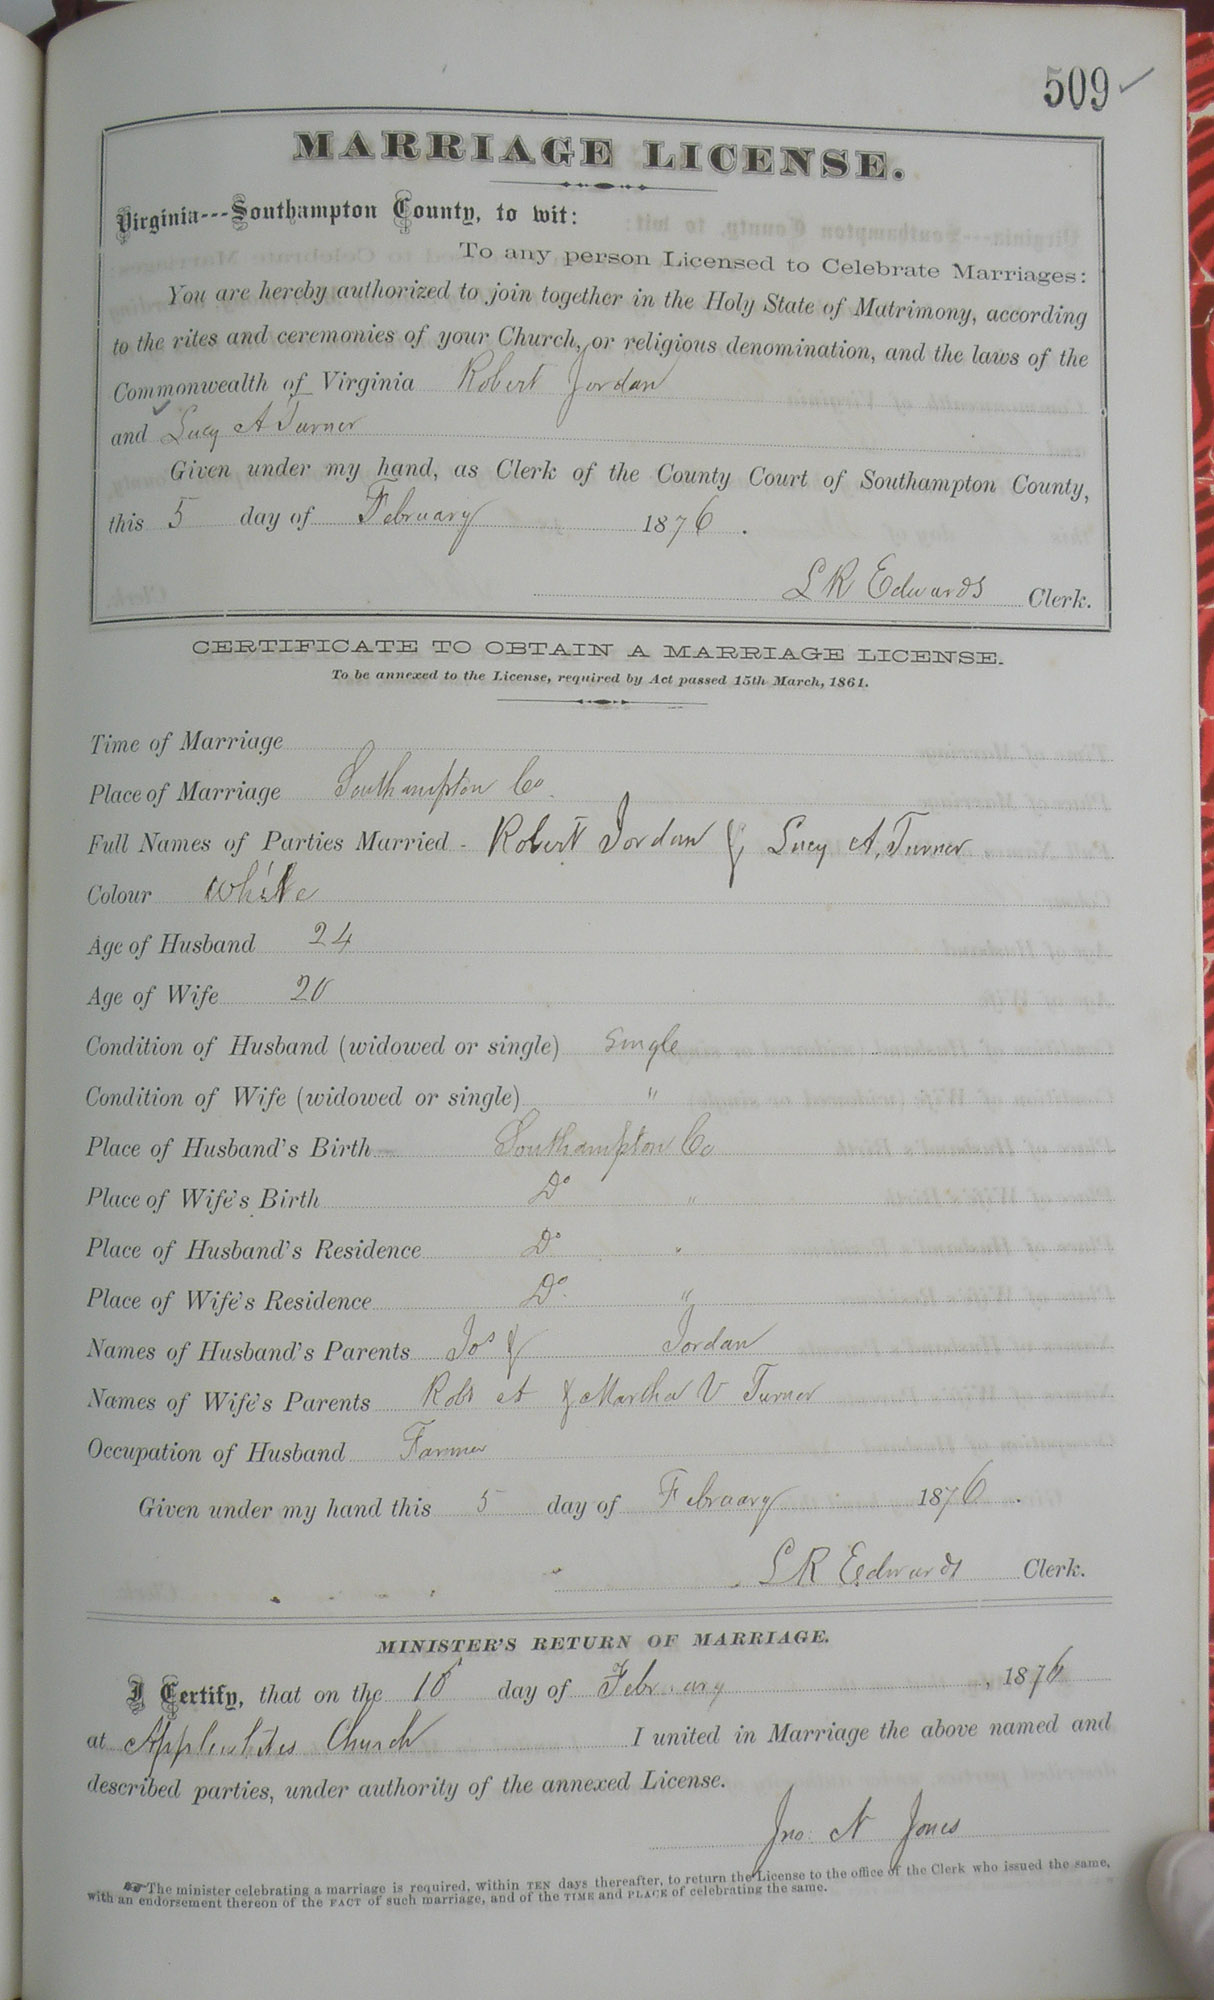 509
MARRIAGE LICENSE.
Virginia---Southampton County, to wit:
To any person Licensed to Celebrate Marriages:
You are hereby authorized to join together in the Holy State of Matrimony, according
to the rites and ceremonies of your Church, or religious denomination, and the laws of the
Commonwealth of Virginia Robert Jordan
and Lucy A Turner
Given under my hand, as Clerk of the County Court of Southampton County,
this 5 day of February 1876.
L R Edwards Clerk.
CERTIFICATE TO OBTAIN A MARRIAGE LICENSE.
To be annexed to the License, required by Act passed 15th March, 1861.
Time of Marriage
Place of Marriage Southampton Co.
Full Names of Parties Married - Robert Jordan & Lucy A. Turner
Colour White
Age of Husband 24
Age of Wife 20
Condition of Husband (widowed or single) Single
Condition of Wife (widowed or single) "
Place of Husband's Birth Southampton Co
Place of Wife's Birth Do "
Place of Husband's Residence Do "
Place of Wife's Residence Do. "
Names of Husband's Parents Jos & Jordan
Names of Wife's Parents Robt A & Martha V Turner
Occupation of Husband Farmer
Given under my hand this 5 day of February 1876.
L R Edwards Clerk.
MINISTER'S RETURN OF MARRIAGE.
I Certify, that on the day of February, 1876
at Church I united in Marriage the above named and
described parties, under authority of the annexed License.
Jno. N Jones
The minister celebrating a marriage is required, within TEN days thereafter, to return the License to the office of the Clerk who issued the same,
with an endorsement thereon of the FACT of such marriage, and of the TIME and PLACE of celebrating the same.